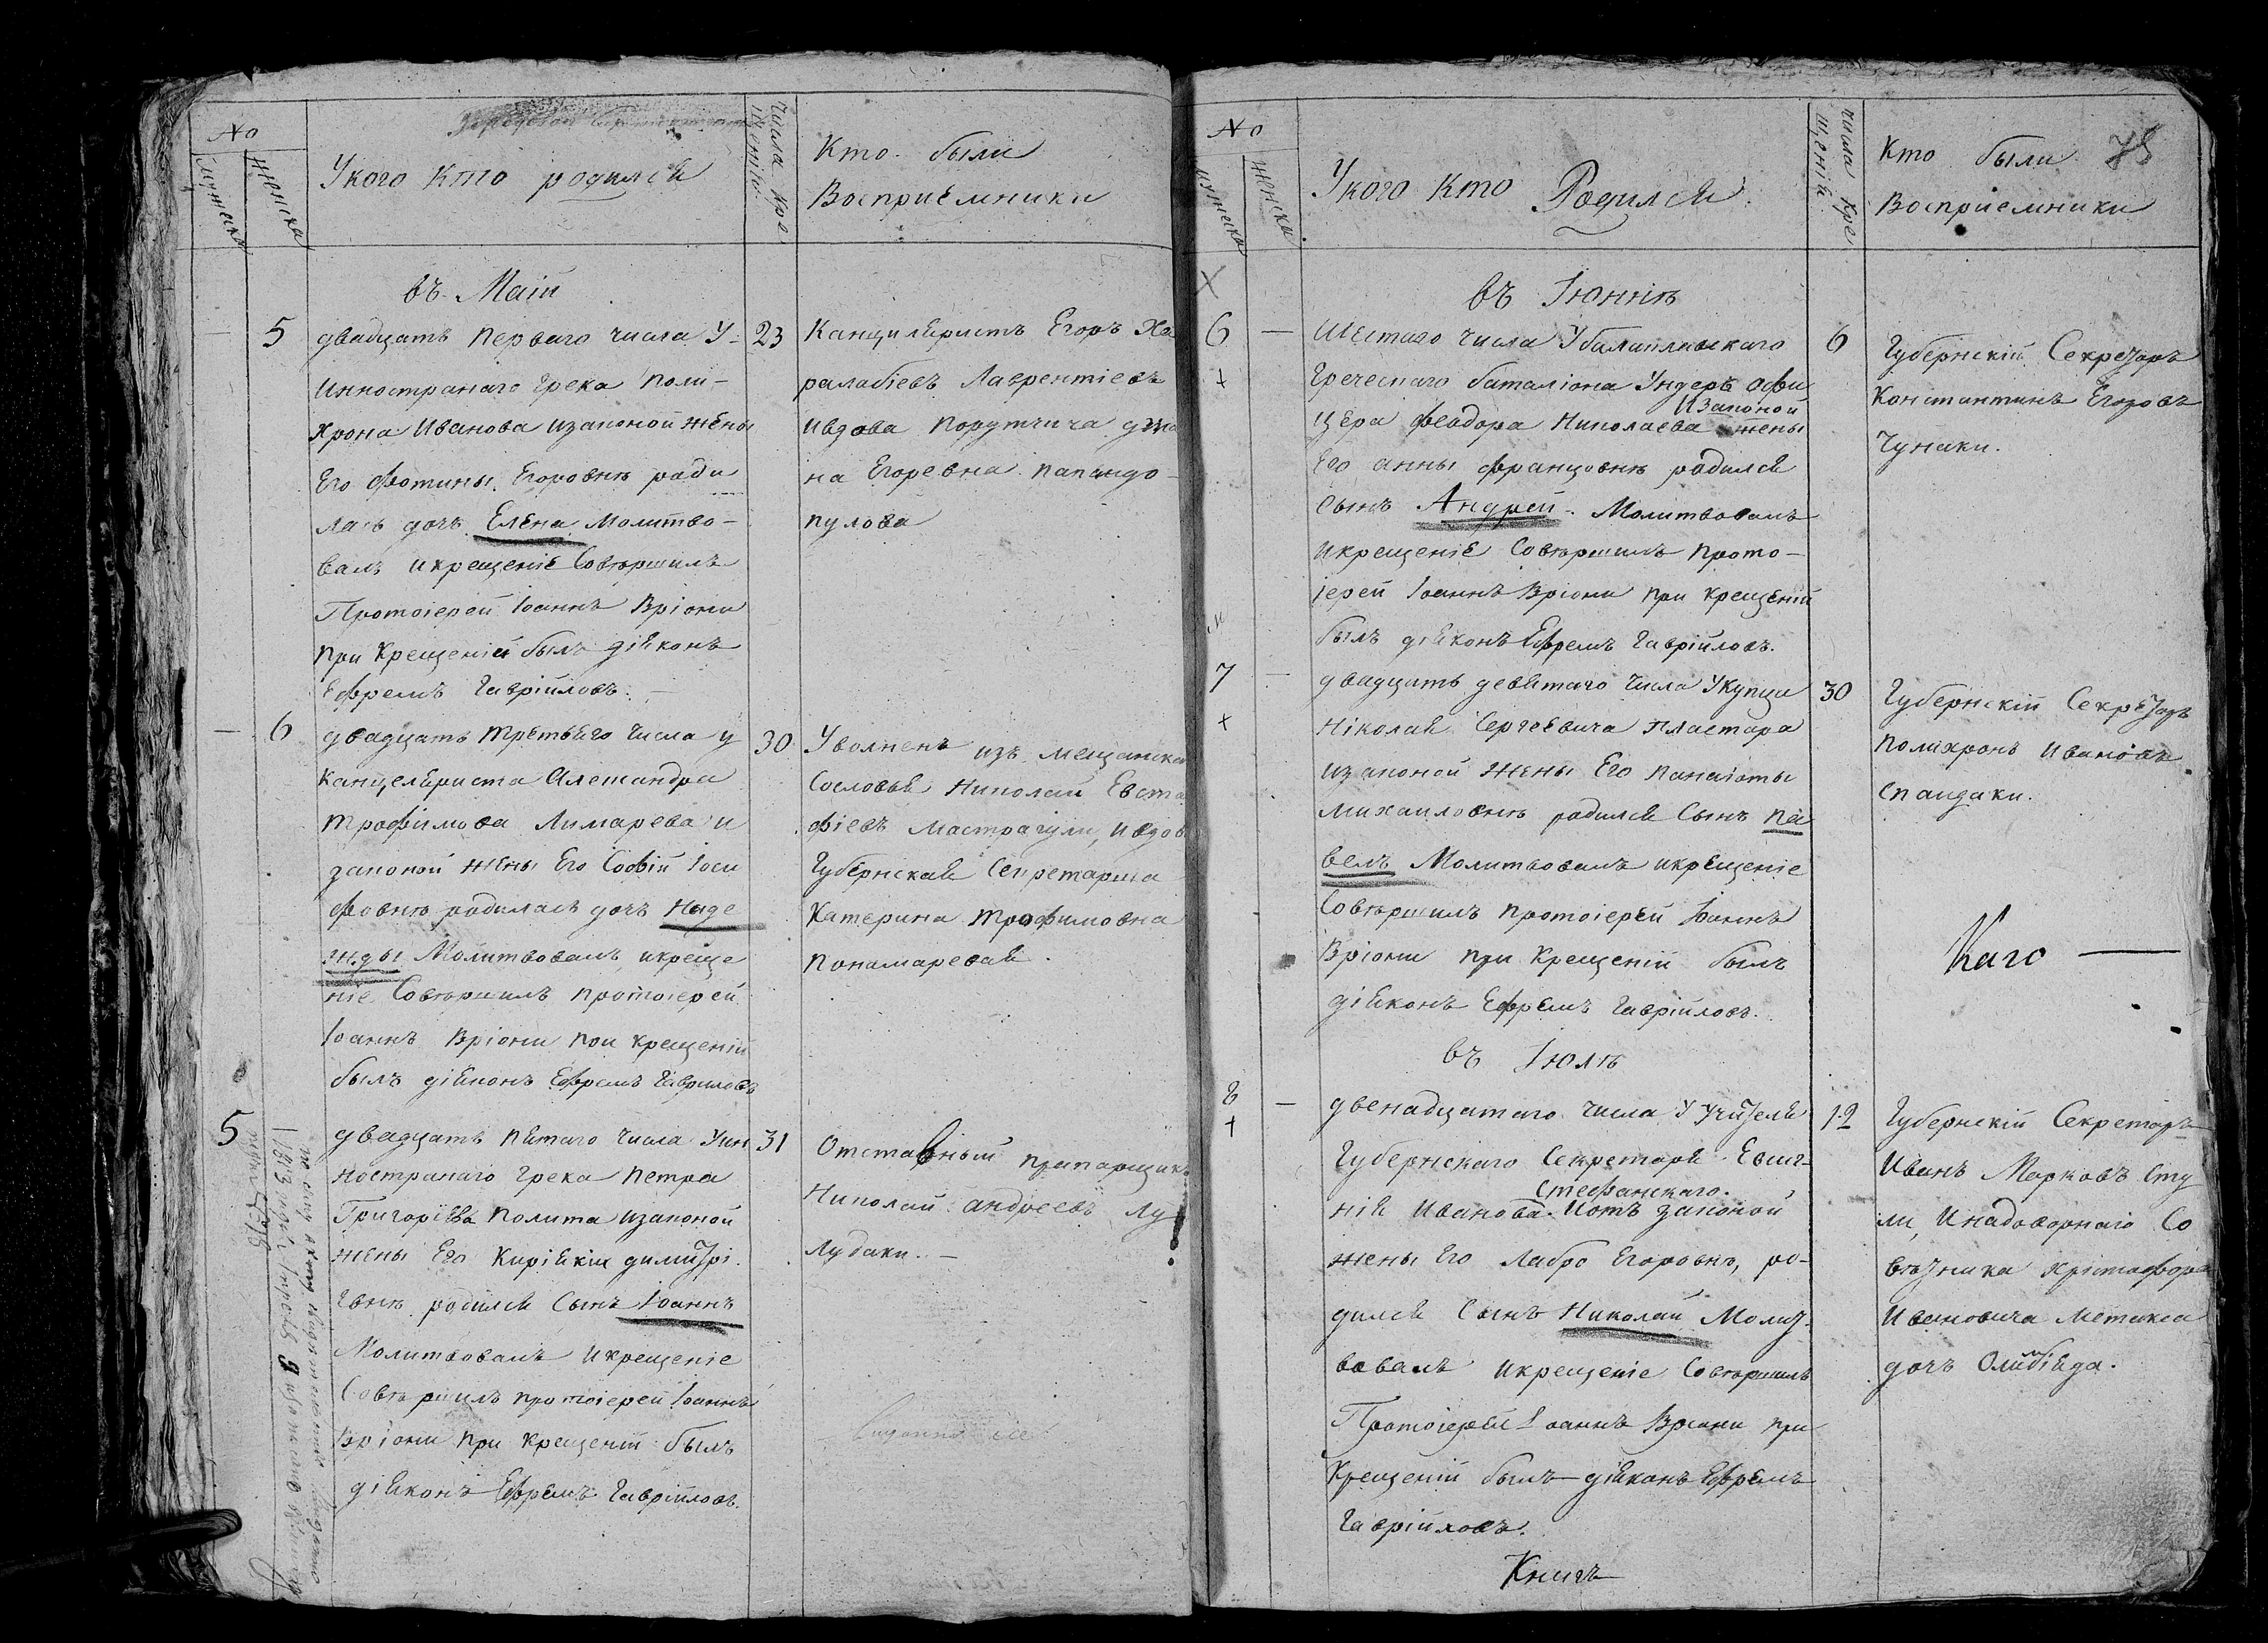 No
мужеска
женска
У кого кто родился
Числа кре
щенію
Кто были
Восприемники
въ Маіи
5 двадцать перваго числа У- 23
инностранаго грека Поли-
хрона Иванова иззаконой жены
Его Фотины Егоровнѣ роди
лась дочь Елена Молитво-
валъ и крещеніе Совершилъ
Протоіерей Іоаннъ Вріони
при Крещеніи былъ діяконъ
Ефремъ Гавріиловъ.
Канциляристъ Егоръ Ха
ралабіевъ Лаврентіевъ
и вдова Порутчича
на Егоревна Папандо-
пулова
6 двадцать третьяго числа у 30
Канцеляриста Алеѯандра
Трофимова Лимарева и
законой жены Его Софіи Іоси
фовнѣ родилась дочь Наде
жды Молитвовалъ и креще
ніе Совершилъ протоіерей
Іоаннъ Вріони при крещеніи
былъ діяконъ Ефремъ Гавриловъ
Уволненъ изъ мещанска
Сословья Николай Евста
фіевъ Мастрагули, и вдов
Губернская Секретарша
Катерина Трофимовна
Понамаревая.
5 двадцать пятаго числа Уин 31
ностранаго грека Петра
Григоріева Полита иззаконой
жены Его Киріякіи димитрі
евнѣ родился Сынъ Іоаннъ
Молитвовалъ и крещеніе
Совершилъ протоіерей Іоаннъ
Вріони при крещеніи былъ
діяконъ Ефремъ Гавріиловъ.
Отставный прапорщикъ
Николай андреевъ Лу
лудаки.
No
мужеска
женска
У кого кто Родился
Числа кре
щеній
Кто были 75
Восприемники
въ Іюнѣ
6 — Шестаго числа У балаклавскаго 6
Греческаго баталіона Ундеръ офи
Иззаконой
цера Феодора Николаева жены
Его анны францовнѣ родился
Сынъ Андрей. Молитвовалъ
и крещеніе Совершилъ прото-
іерей Іоаннъ Вріони при крещеніи
былъ діяконъ Ефремъ Гавріиловъ.
Губернскій Секретарь
Константинъ Егоровъ
Чунаки.
7 — двадцать девятаго числа У купца 30
Николая Сергеевича Пластара
иззаконой жены Его Панаіоты
Михаиловнѣ родился Сынъ Па
велъ Молитвовалъ и крещеніе
Совершилъ протоіерей Іоаннъ
Вріони при Крещеніи былъ
діяконъ Ефремъ Гавріиловъ.
Губернскій Секретарь
Полихронъ Ивановъ
Спандаки.
Каго —
въ Іюлѣ
8 — двенадцатаго числа У Учителя 12
Губернскаго Секретаря Евге-
Стефанскаго.
нія Иванова. Иотъ законой
жены Его Лабро Егоровнѣ, ро-
дился Сынъ Николай Молит-
вовалъ и крещеніе Совершилъ
Протоіерей Іоаннъ Вріони при
Крещеніи былъ діяконъ Ефремъ
Гавріиловъ.
Губернскій Секретарь
Иванъ Марковъ Сту
ли, И надворнаго Со
вѣтника Христофора
Ивановича Метакса
дочь Олимбіяда.
Книгъ